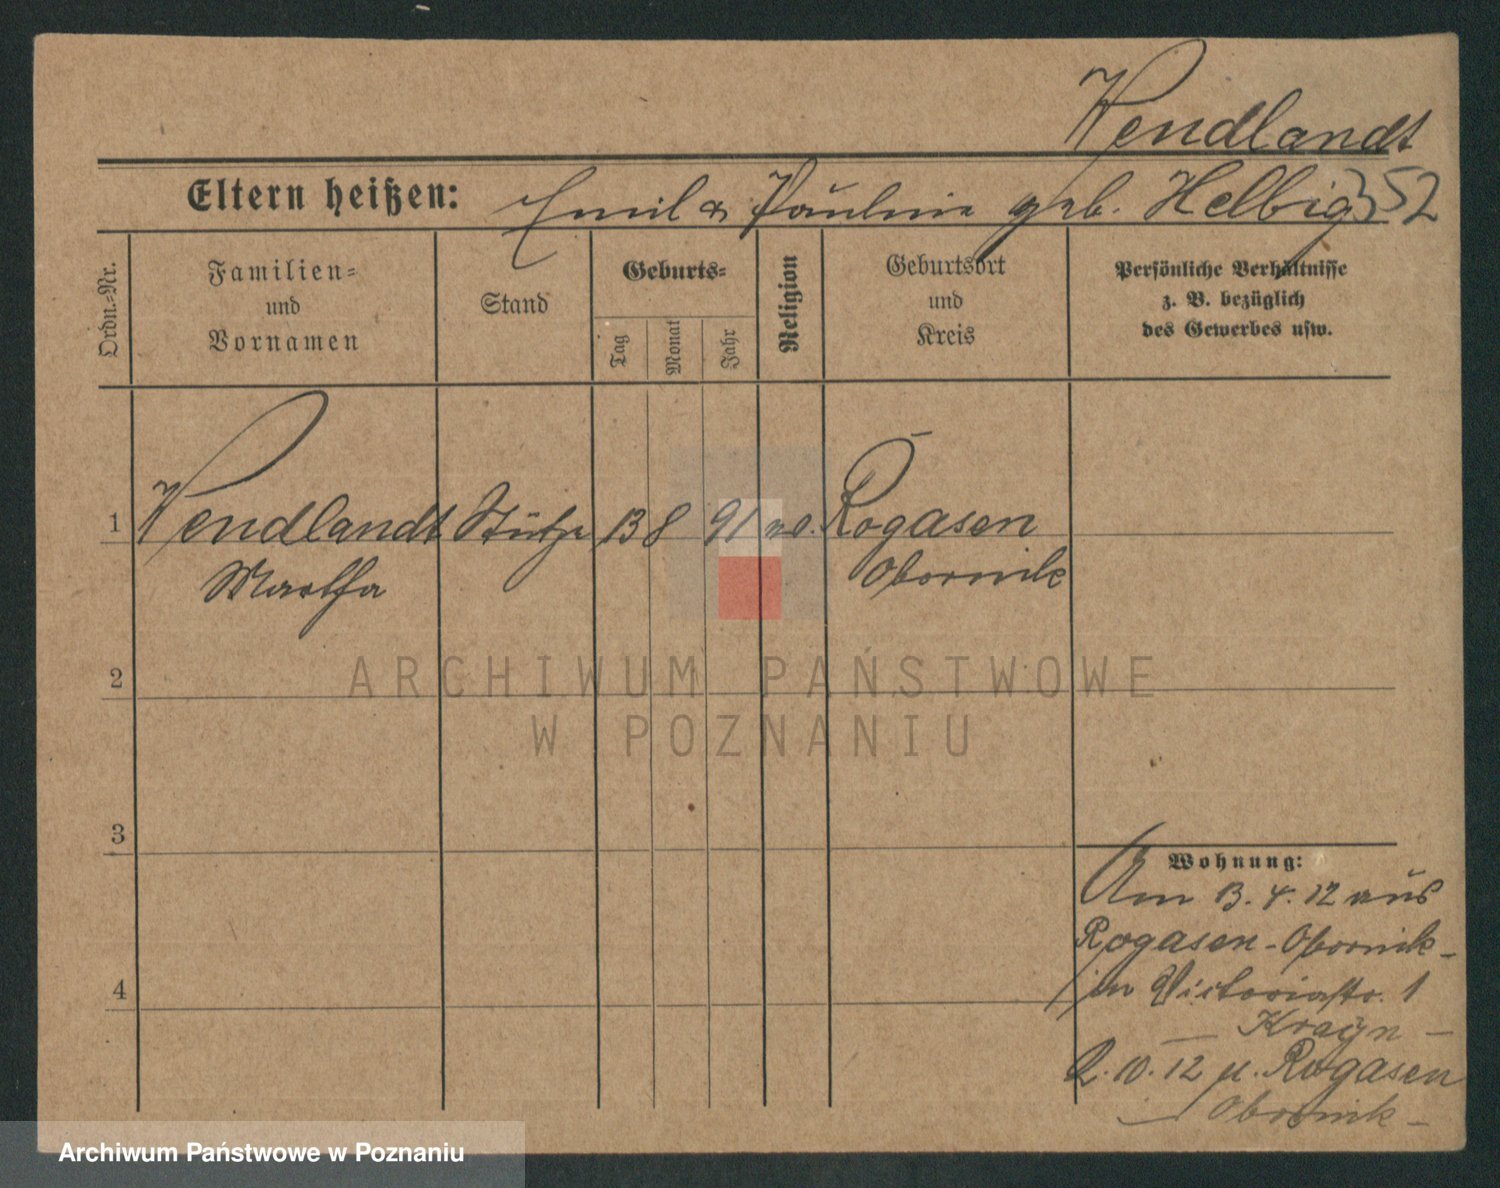 Wendlandt
Eltern heißen: Emil & Pauline geb. Helbig 352
Ordn.-Nr.
Familien-
und
Vornamen
Stand
Geburts-
Tag
Monat
Jahr
Religion
Geburtsort
und
Kreis
Persönliche Verhältnisse
z. B. bezüglich
des Gewerbes usw.
1 Wendlandt Stütze 13 8 91 Rogasen
Martha Obornik
ARCHIWUM PAŃSTWOWE
2
W POZNANIU
3
Wohnung:
Am 13.4.12 aus
Rogasen-Obornik-
in Victoriastr. 1
4
— Krayn —
2.10.12 n. Rogasen
— Obornik -
Archiwum Państwowe w Poznaniu